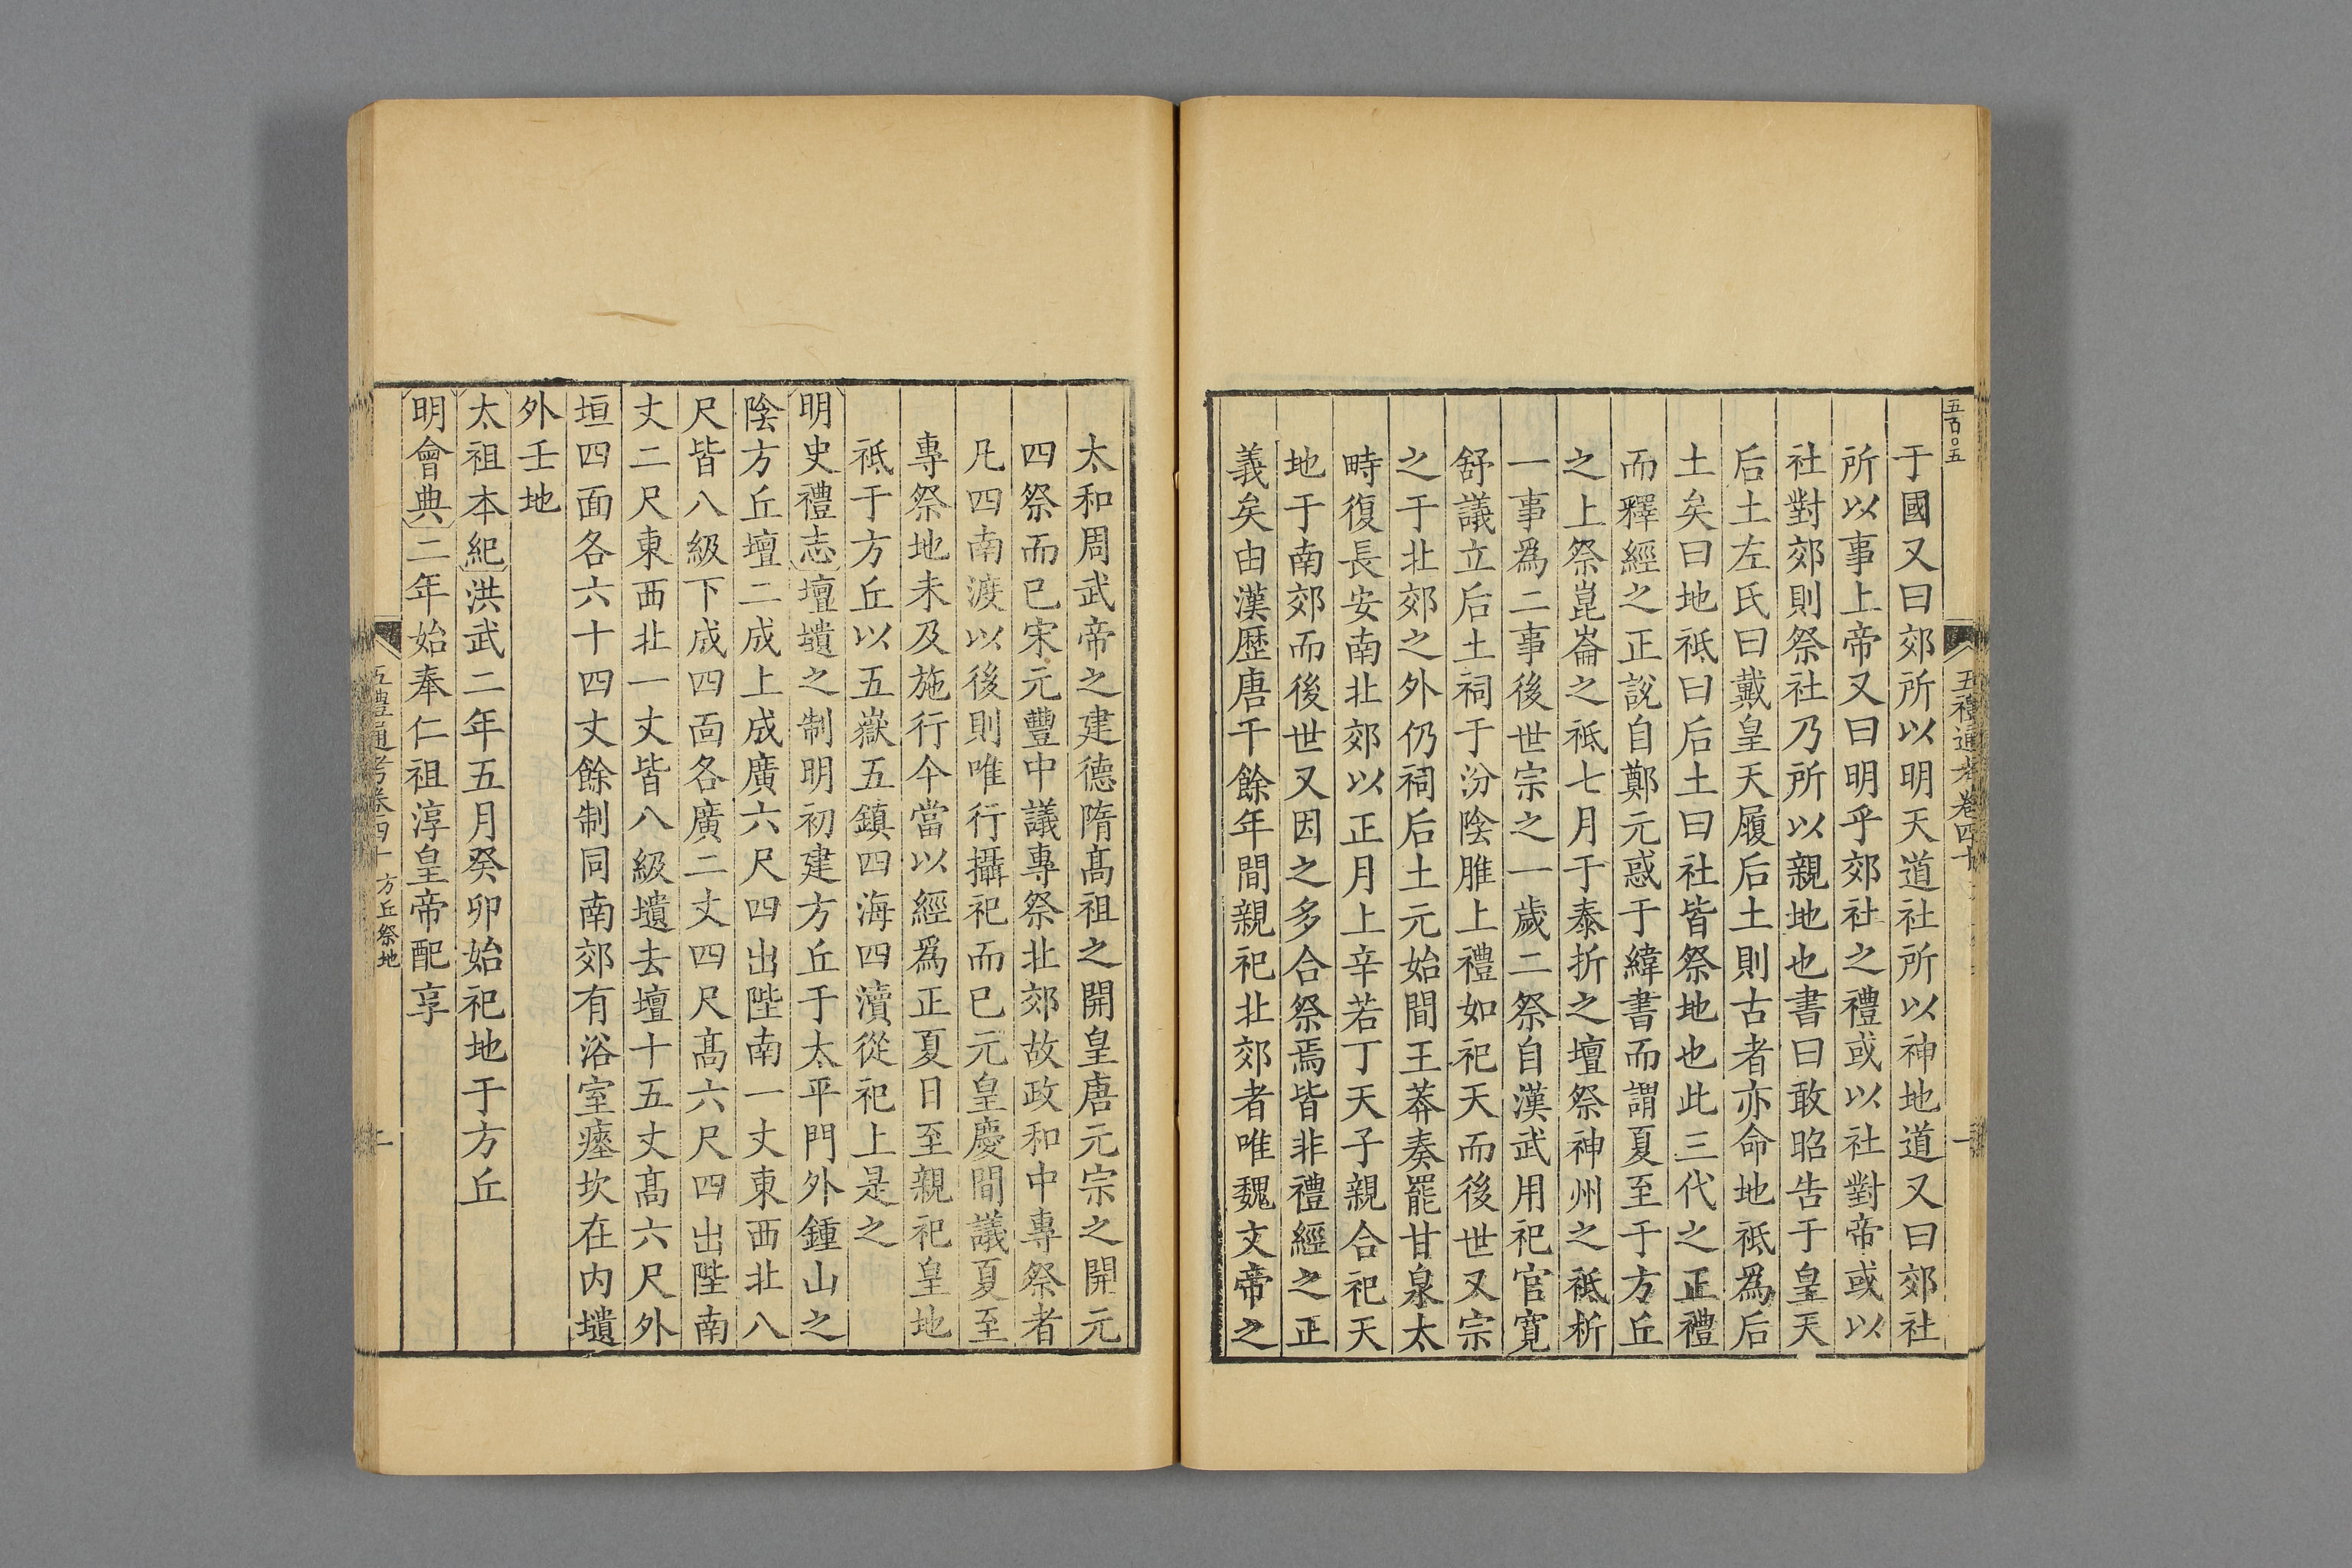 五百〇五
五禮通考卷四十
于國又曰郊所以明天道社所以神地道又曰郊社
所以事上帝又曰明乎郊社之禮或以社對帝或以
社對郊則祭社乃所以親地也書曰敢昭告于皇天
后土左氏曰戴皇天履后土則古者亦命地祇爲后
土矣曰地祇曰后土曰社皆祭地也此三代之正禮
而釋經之正說自鄭元惑于緯書而謂夏至于方丘
之上祭崑崙之祇七月于泰折之壇祭神州之祇析
一事爲二事後世宗之一歲二祭自漢武用祀官寬
舒議立后土祠于汾陰脽上禮如祀天而後世又宗
之于北郊之外仍祠后土元始間王莽奏罷甘泉太
畤復長安南北郊以正月上辛若丁天子親合祀天
地于南郊而後世又因之多合祭焉皆非禮經之正
義矣由漢歷唐千餘年間親祀北郊者唯魏文帝之
太和周武帝之建德隋高祖之開皇唐元宗之開元
四祭而已宋元豐中議專祭北郊故政和中專祭者
凡四南渡以後則唯行攝祀而已元皇慶間議夏至
專祭地未及施行今當以經爲正夏日至親祀皇地
祇于方丘以五嶽五鎮四海四瀆從祀上是之
明史禮志壇壝之制明初建方丘于太平門外鍾山之
陰方丘壇二成上成廣六尺四出陛南一丈東西北八
尺皆八級下成四面各廣二丈四尺高六尺四出陛南
丈二尺東西北一丈皆八級壝去壇十五丈高六尺外
垣四面各六十四丈餘制同南郊有浴室瘞坎在內壝
外壬地
太祖本紀洪武二年五月癸卯始祀地于方丘
明會典二年始奉仁祖淳皇帝配享
五禮通考卷四十 方丘祭地